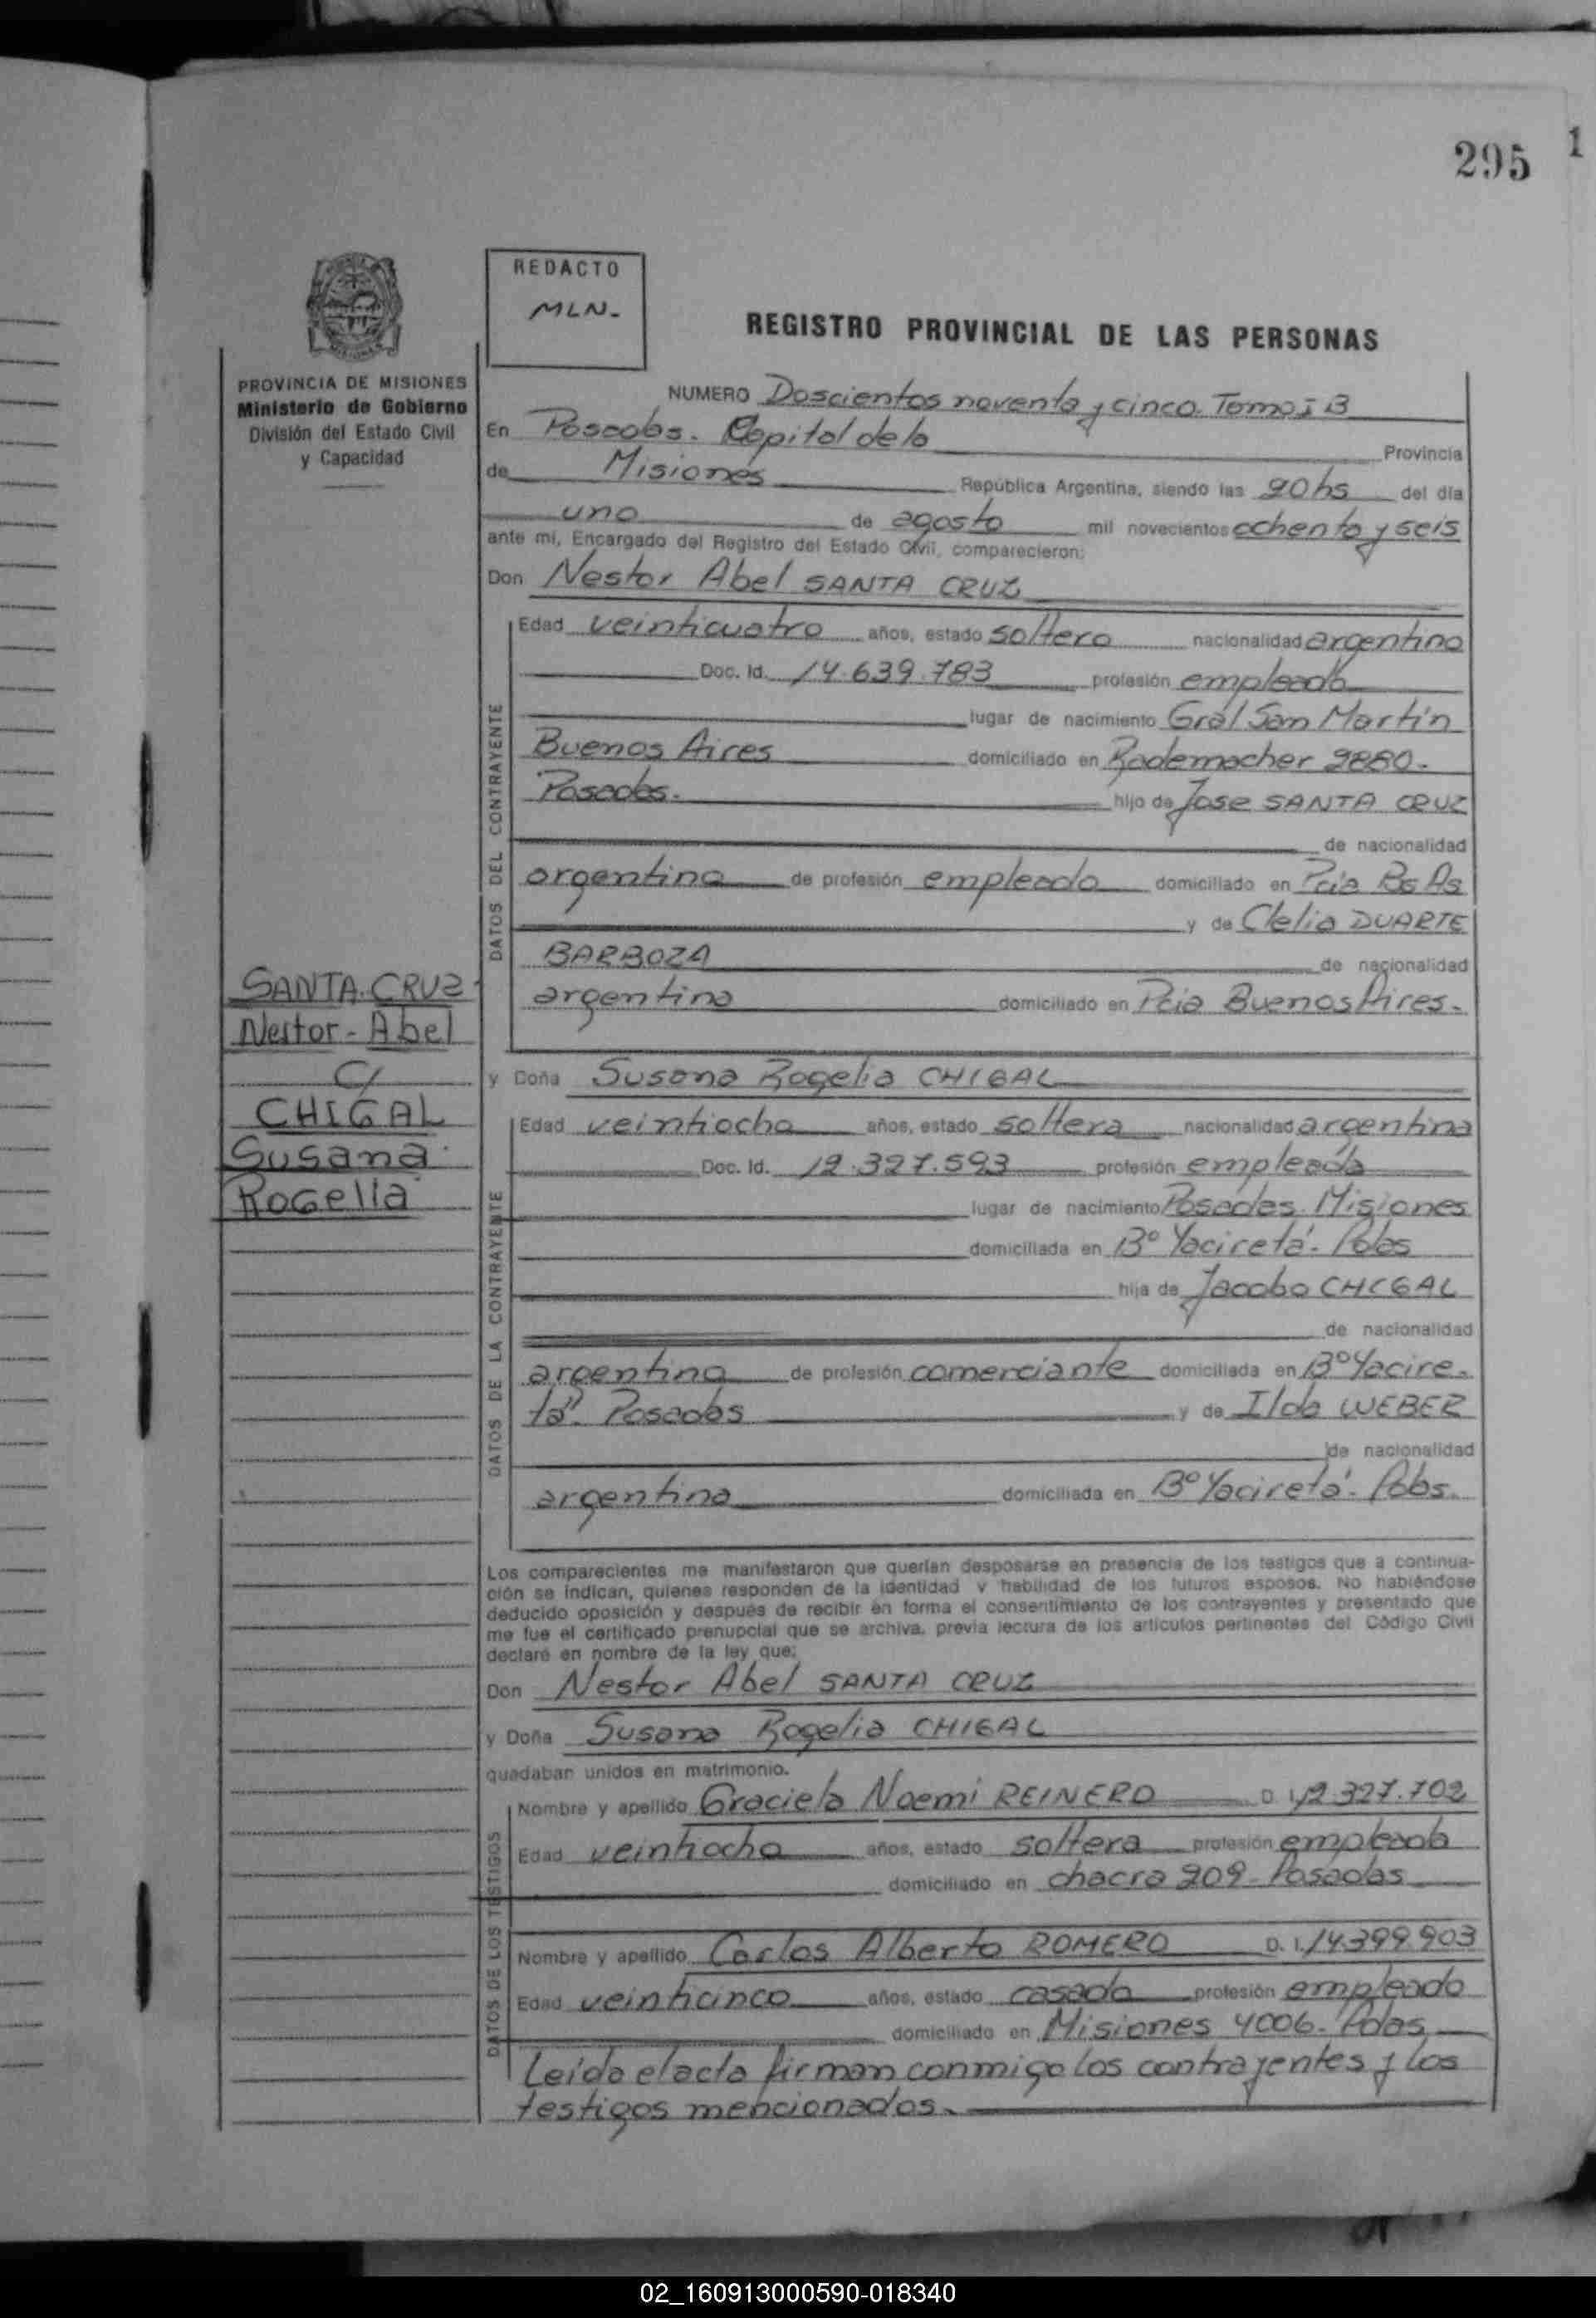 295 1
REDACTO
MLN.
REGISTRO PROVINCIAL DE LAS PERSONAS
PROVINCIA DE MISIONES
Ministerio de Gobierno
División del Estado Civil
y Capacidad
NUMERO Doscientos noventa y cinco. Tomo: I B
En Posadas. Capital de la Provincia
de Misiones República Argentina, siendo las 20hs del día
uno de agosto mil novecientos ochenta y seis
ante mí, Encargado del Registro del Estado Civil, comparecieron:
Don Nestor Abel SANTA CRUZ
DATOS DEL CONTRAYENTE
Edad veinticuatro años, estado soltero nacionalidad argentino
Doc. Id. 14.639.783 profesión empleado
lugar de nacimiento Gral San Martín
Buenos Aires domiciliado en Rademacher 2880.
Posadas. hijo de Jose SANTA CRUZ
de nacionalidad
argentina de profesión empleado domiciliado en Pcia Bs As
y de Clelia DUARTE
BARBOZA de nacionalidad
argentina domiciliado en Pcia Buenos Aires.
SANTA.CRUZ
Nestor - Abel
C/
CHIGAL
Susana
Rogelia
y Doña Susana Rogelia CHIGAL
DATOS DE LA CONTRAYENTE
Edad veintiocho años, estado soltera nacionalidad argentina
Doc. Id. 12.327.593 profesión empleada
lugar de nacimiento Posadas. Misiones
domiciliada en B° Yacireta'. Pdas
hija de Jacobo CHIGAL
de nacionalidad
argentina de profesión comerciante domiciliada en B° Yacire-
tá". Posadas y de Ilda WEBER
de nacionalidad
argentina domiciliada en B° Yacireta'. Pdas.
Los comparecientes me manifestaron que querían desposarse en presencia de los testigos que a continua-
ción se indican, quienes responden de la identidad y habilidad de los futuros esposos. No habiéndose
deducido oposición y después de recibir en forma el consentimiento de los contrayentes y presentado que
me fue el certificado prenupcial que se archiva, previa lectura de los artículos pertinentes del Código Civil
declaré en nombre de la ley que:
Don Nestor Abel SANTA CRUZ
y Doña Susana Rogelia CHIGAL
quedaban unidos en matrimonio.
DATOS DE LOS TESTIGOS
Nombre y apellido Graciela Noemi REINERO D. I. 12.327.702
Edad veintiocho años, estado soltera profesión empleada
domiciliado en chacra 209 - Posadas
Nombre y apellido Carlos Alberto ROMERO D. I. 14.399.903
Edad veinticinco años, estado casado profesión empleado
domiciliado en Misiones 4006 - Pdas
Leída el acta firman conmigo los contrayentes y los
testigos mencionados.
02_160913000590-018340